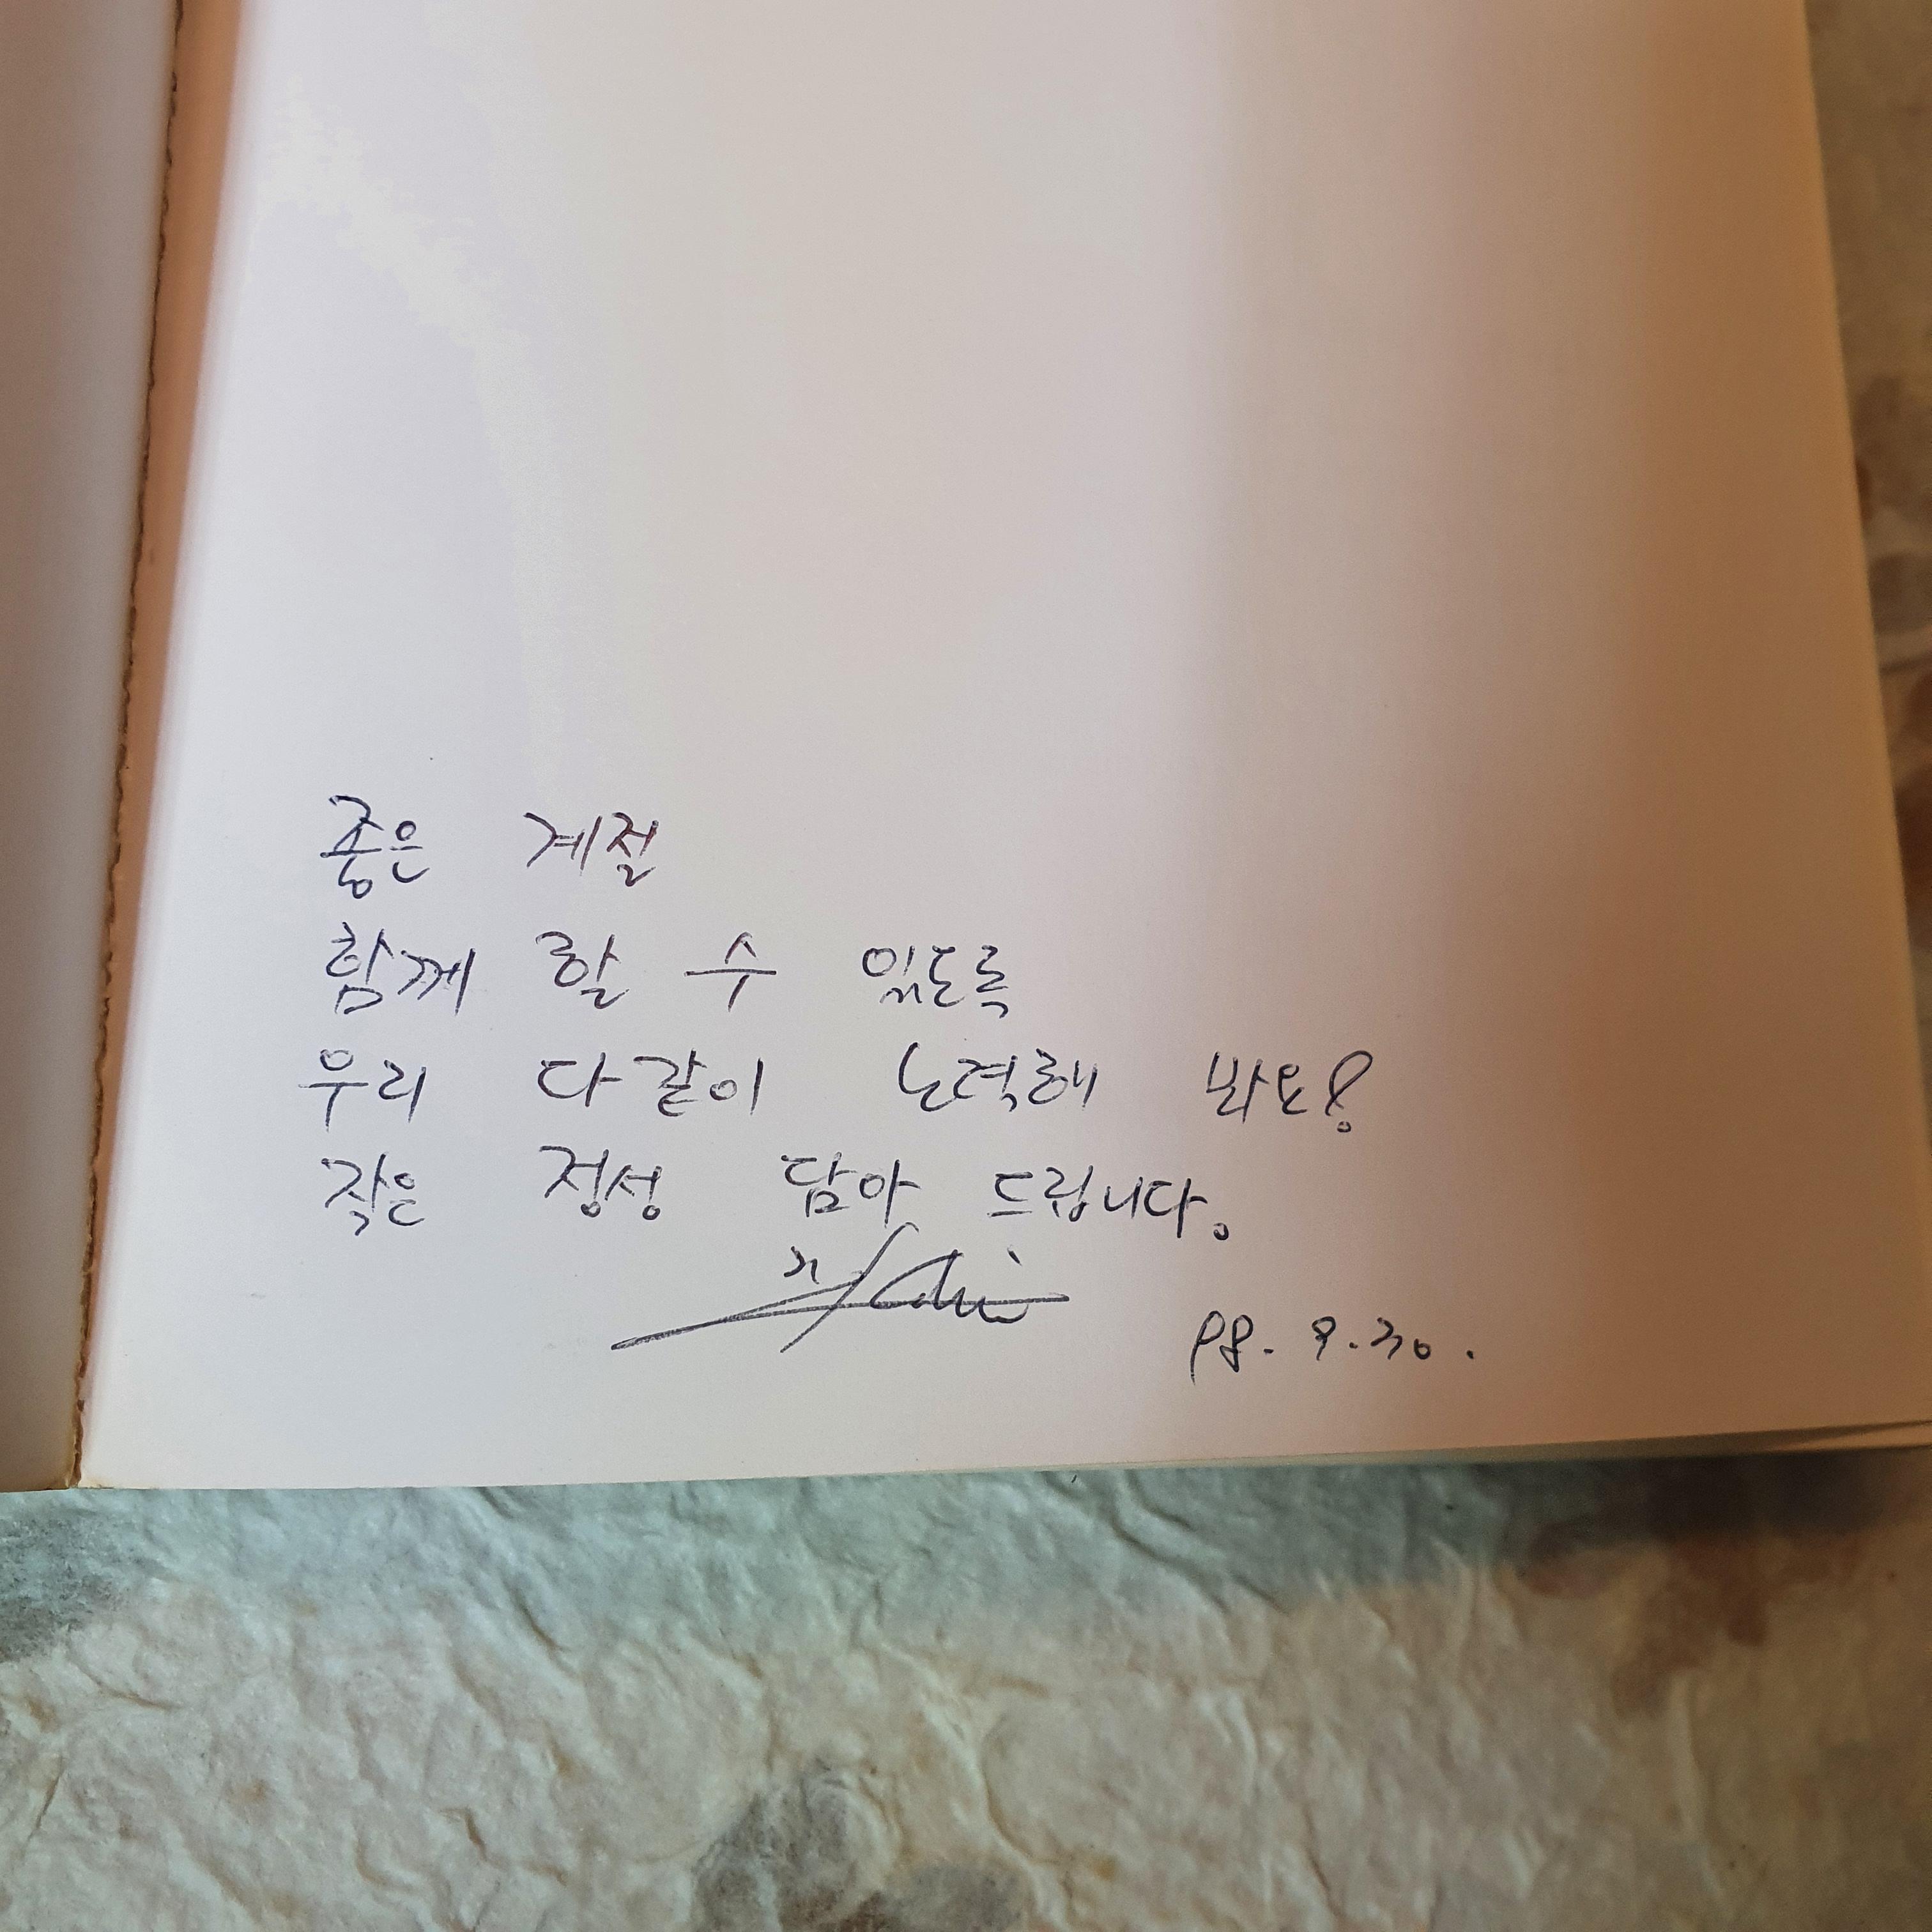 좋은 계절
함께 할 수 있도록
우리 다같이 노력해 봐요!
작은 정성 담아 드립니다.
98. 9. 30.